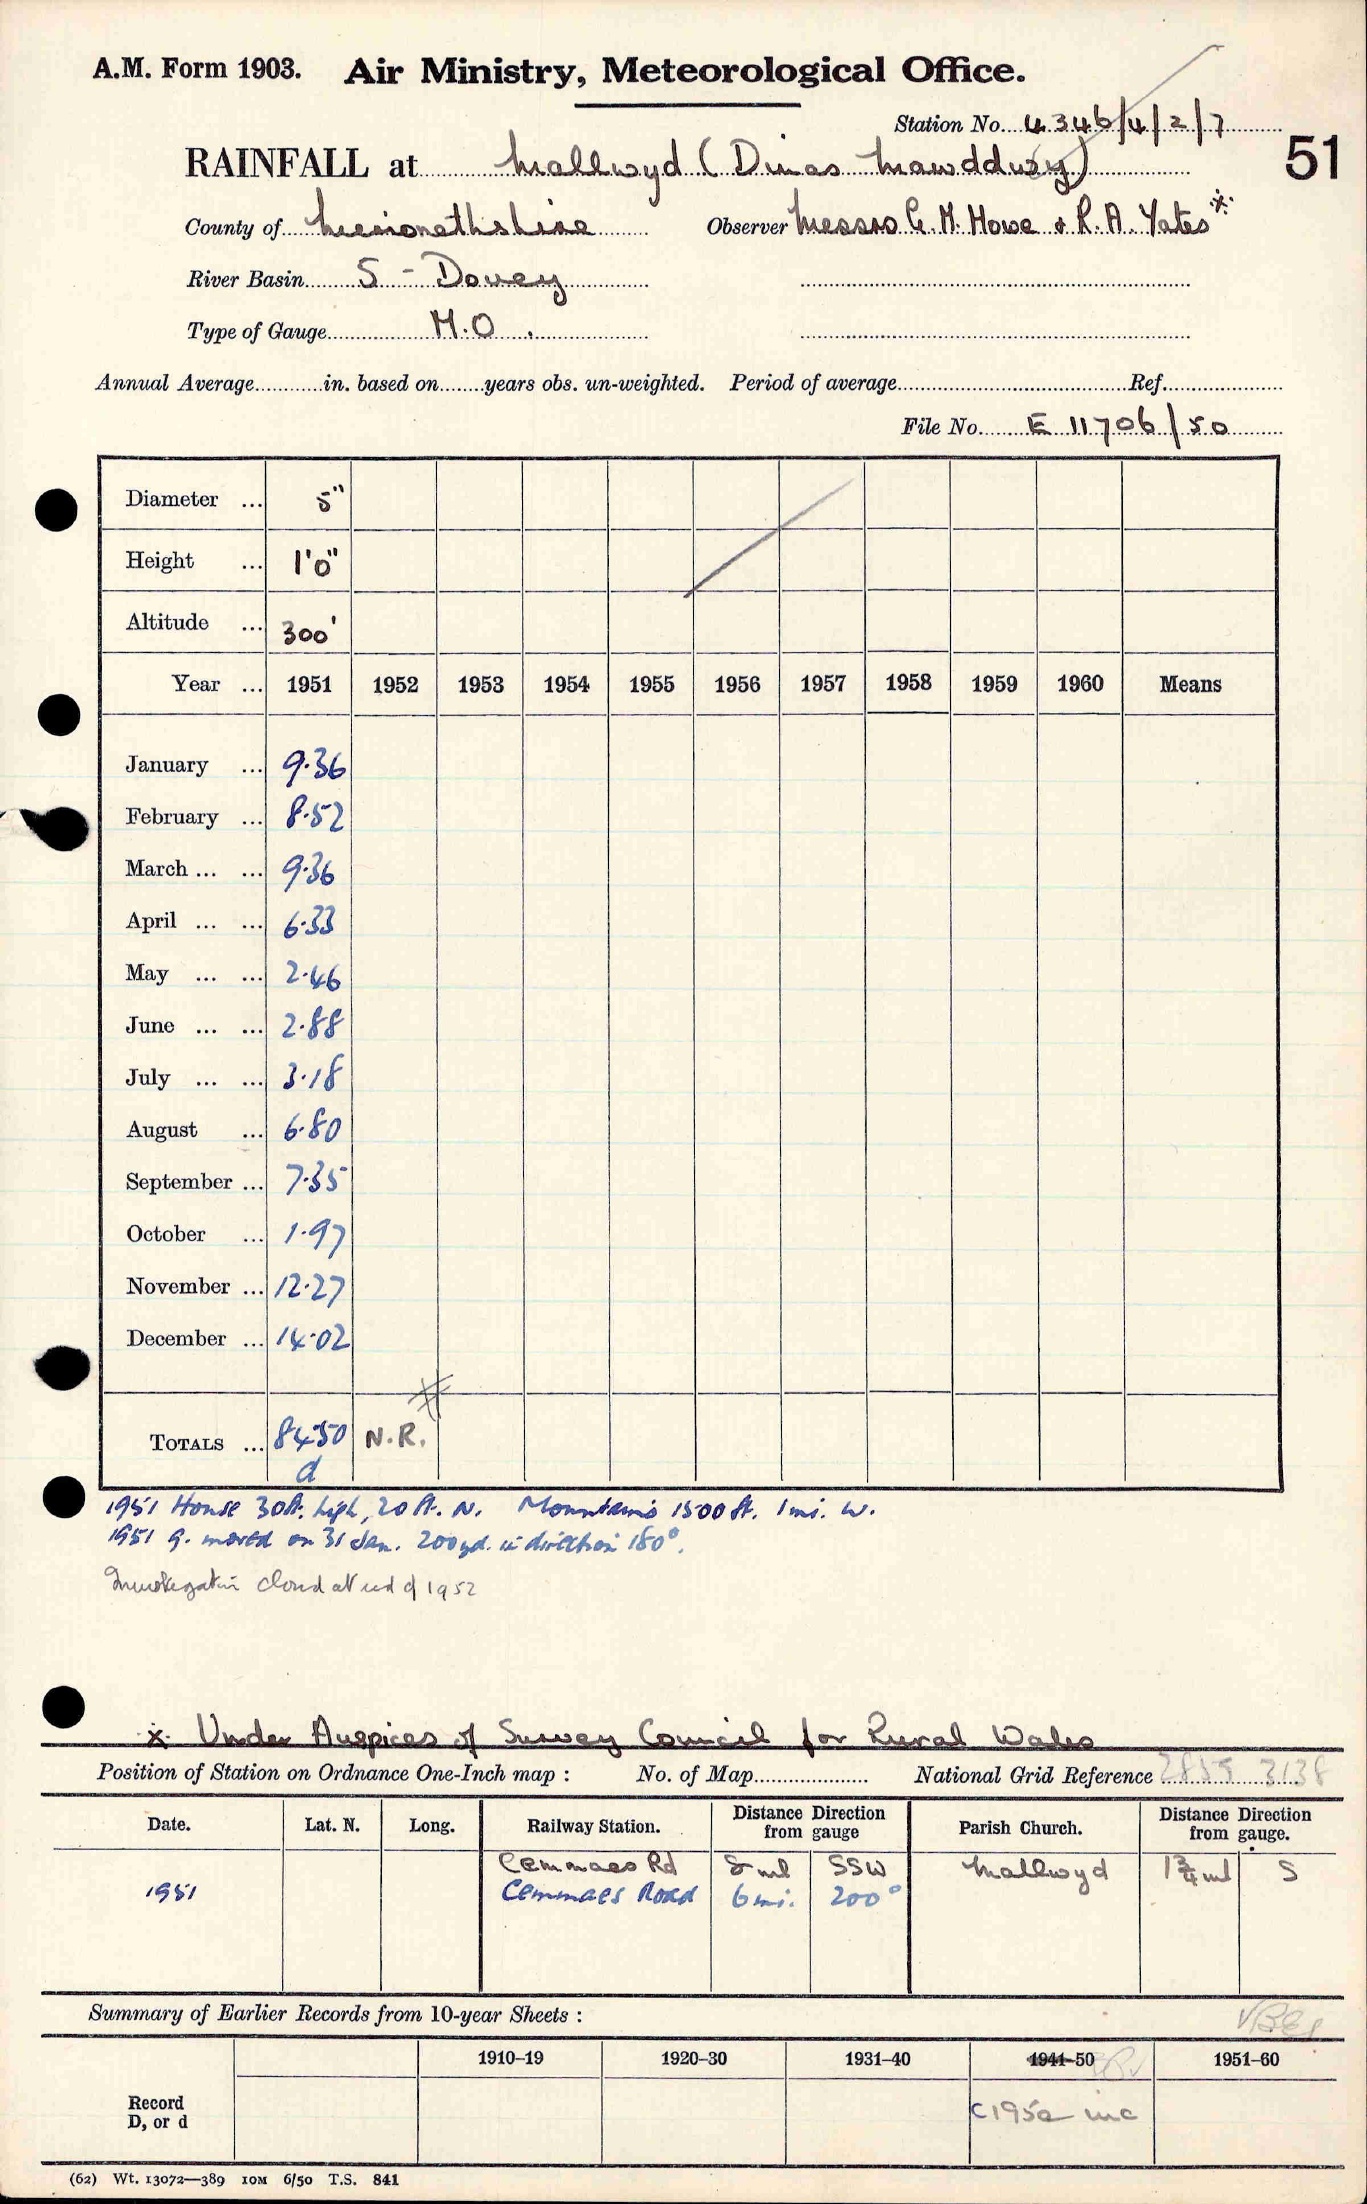 A.M. Form 1903. Air Ministry, Meteorological Office.
Station No. 4346/4/2/7
RAINFALL at Mallwyd (Dinas Mawddwy)
51
County of Merionethshire Observer Messrs G. M. Howe & R. A. Yates *
River Basin 5 - Dovey
Type of Gauge M.O.
Annual Average in. based on years obs. un-weighted. Period of average Ref.
File No. E 11706/50
Diameter ... 5"
Height ... 1'0"
Altitude ... 300'
Year ... 1951 1952 1953 1954 1955 1956 1957 1958 1959 1960 Means
January ... 9.36
February ... 8.52
March ... ... 9.36
April ... ... 6.33
May ... ... 2.46
June ... ... 2.88
July ... ... 3.18
August ... 6.80
September ... 7.35
October ... 1.97
November ... 12.27
December ... 14.02
TOTALS ... 84.50 N.R.
d
1951 House 30ft. high, 20 ft. N. Mountains 1500 ft. 1 mi. W.
1951 g. moved on 31 Jan. 200yd. in direction 180°.
Investigation closed at end of 1952
* Under Auspices of Survey Council for Rural Wales
Position of Station on Ordnance One-Inch map : No. of Map National Grid Reference 2859 3138
Date. Lat. N. Long. Railway Station. Distance from Direction gauge Parish Church. Distance from Direction gauge.
Cemmaes Rd 8 ml SSW Mallwyd 1¾ ml S
1951 Cemmaes Road 6 mi. 200°
Summary of Earlier Records from 10-year Sheets :
1910–19 1920–30 1931–40 1941–50 1951–60
Record
D, or d
c1950 inc
(62) Wt. 13072—389 10M 6/50 T.S. 841